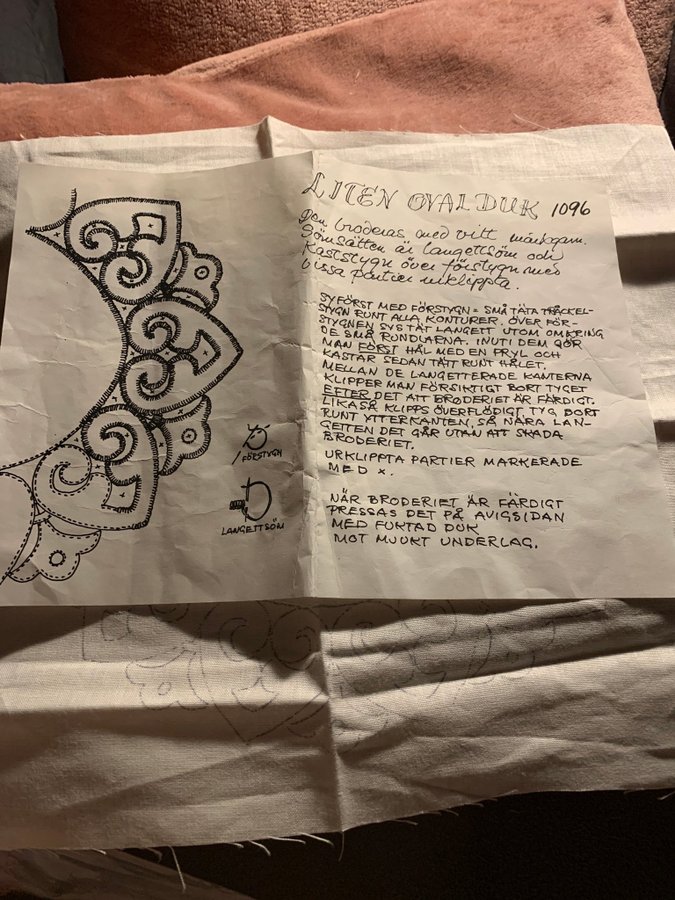 LITEN OVAL DUK 1096
Den broderas med vitt märkgarn.
Sömsätten är langettsöm och
kaststygn över förstygn med
vissa partier urklippta.
SY FÖRST MED FÖRSTYGN = SMÅ TÄTA TRÅCKEL-
STYGN RUNT ALLA KONTURER. ÖVER FÖR-
STYGNEN SYS TÄT LANGETT UTOM OMKRING
DE SMÅ RUNDLARNA. INUTI DEM GÖR
MAN FÖRST HÅL MED EN PRYL OCH
KASTAR SEDAN TÄTT RUNT HÅLET.
MELLAN DE LANGETTERADE KANTERNA
KLIPPER MAN FÖRSIKTIGT BORT TYGET
EFTER DET ATT BRODERIET ÄR FÄRDIGT.
LIKASÅ KLIPPS ÖVERFLÖDIGT TYG BORT
RUNT YTTERKANTEN, SÅ NÄRA LAN-
GETTEN DET GÅR UTAN ATT SKADA
BRODERIET.
URKLIPPTA PARTIER MARKERADE
MED x.
NÄR BRODERIET ÄR FÄRDIGT
PRESSAS DET PÅ AVIGSIDAN
MED FUKTAD DUK
MOT MJUKT UNDERLAG.
FÖRSTYGN
LANGETTSÖM